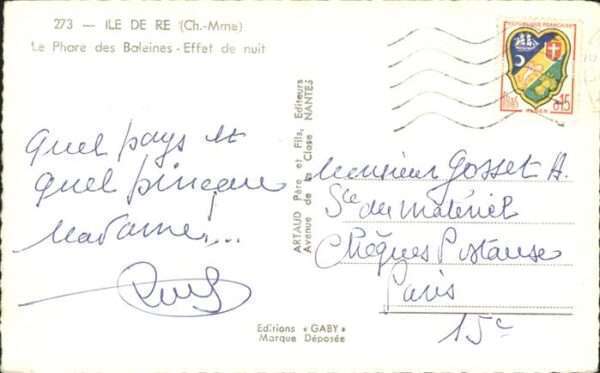 273 — ILE DE RE (Ch.-Mme)
Le Phare des Baleines - Effet de nuit
REPUBLIQUE FRANÇAISE
0,15
ALGER
Quel pays et
quel pineau
Madame...
ARTAUD Père et Fils, Editeurs
Avenue de la Close NANTES
Monsieur Gosset A.
Sce du Matériel
Chèques Postaux
Paris
15e
Editions « GABY »
Marque Déposée